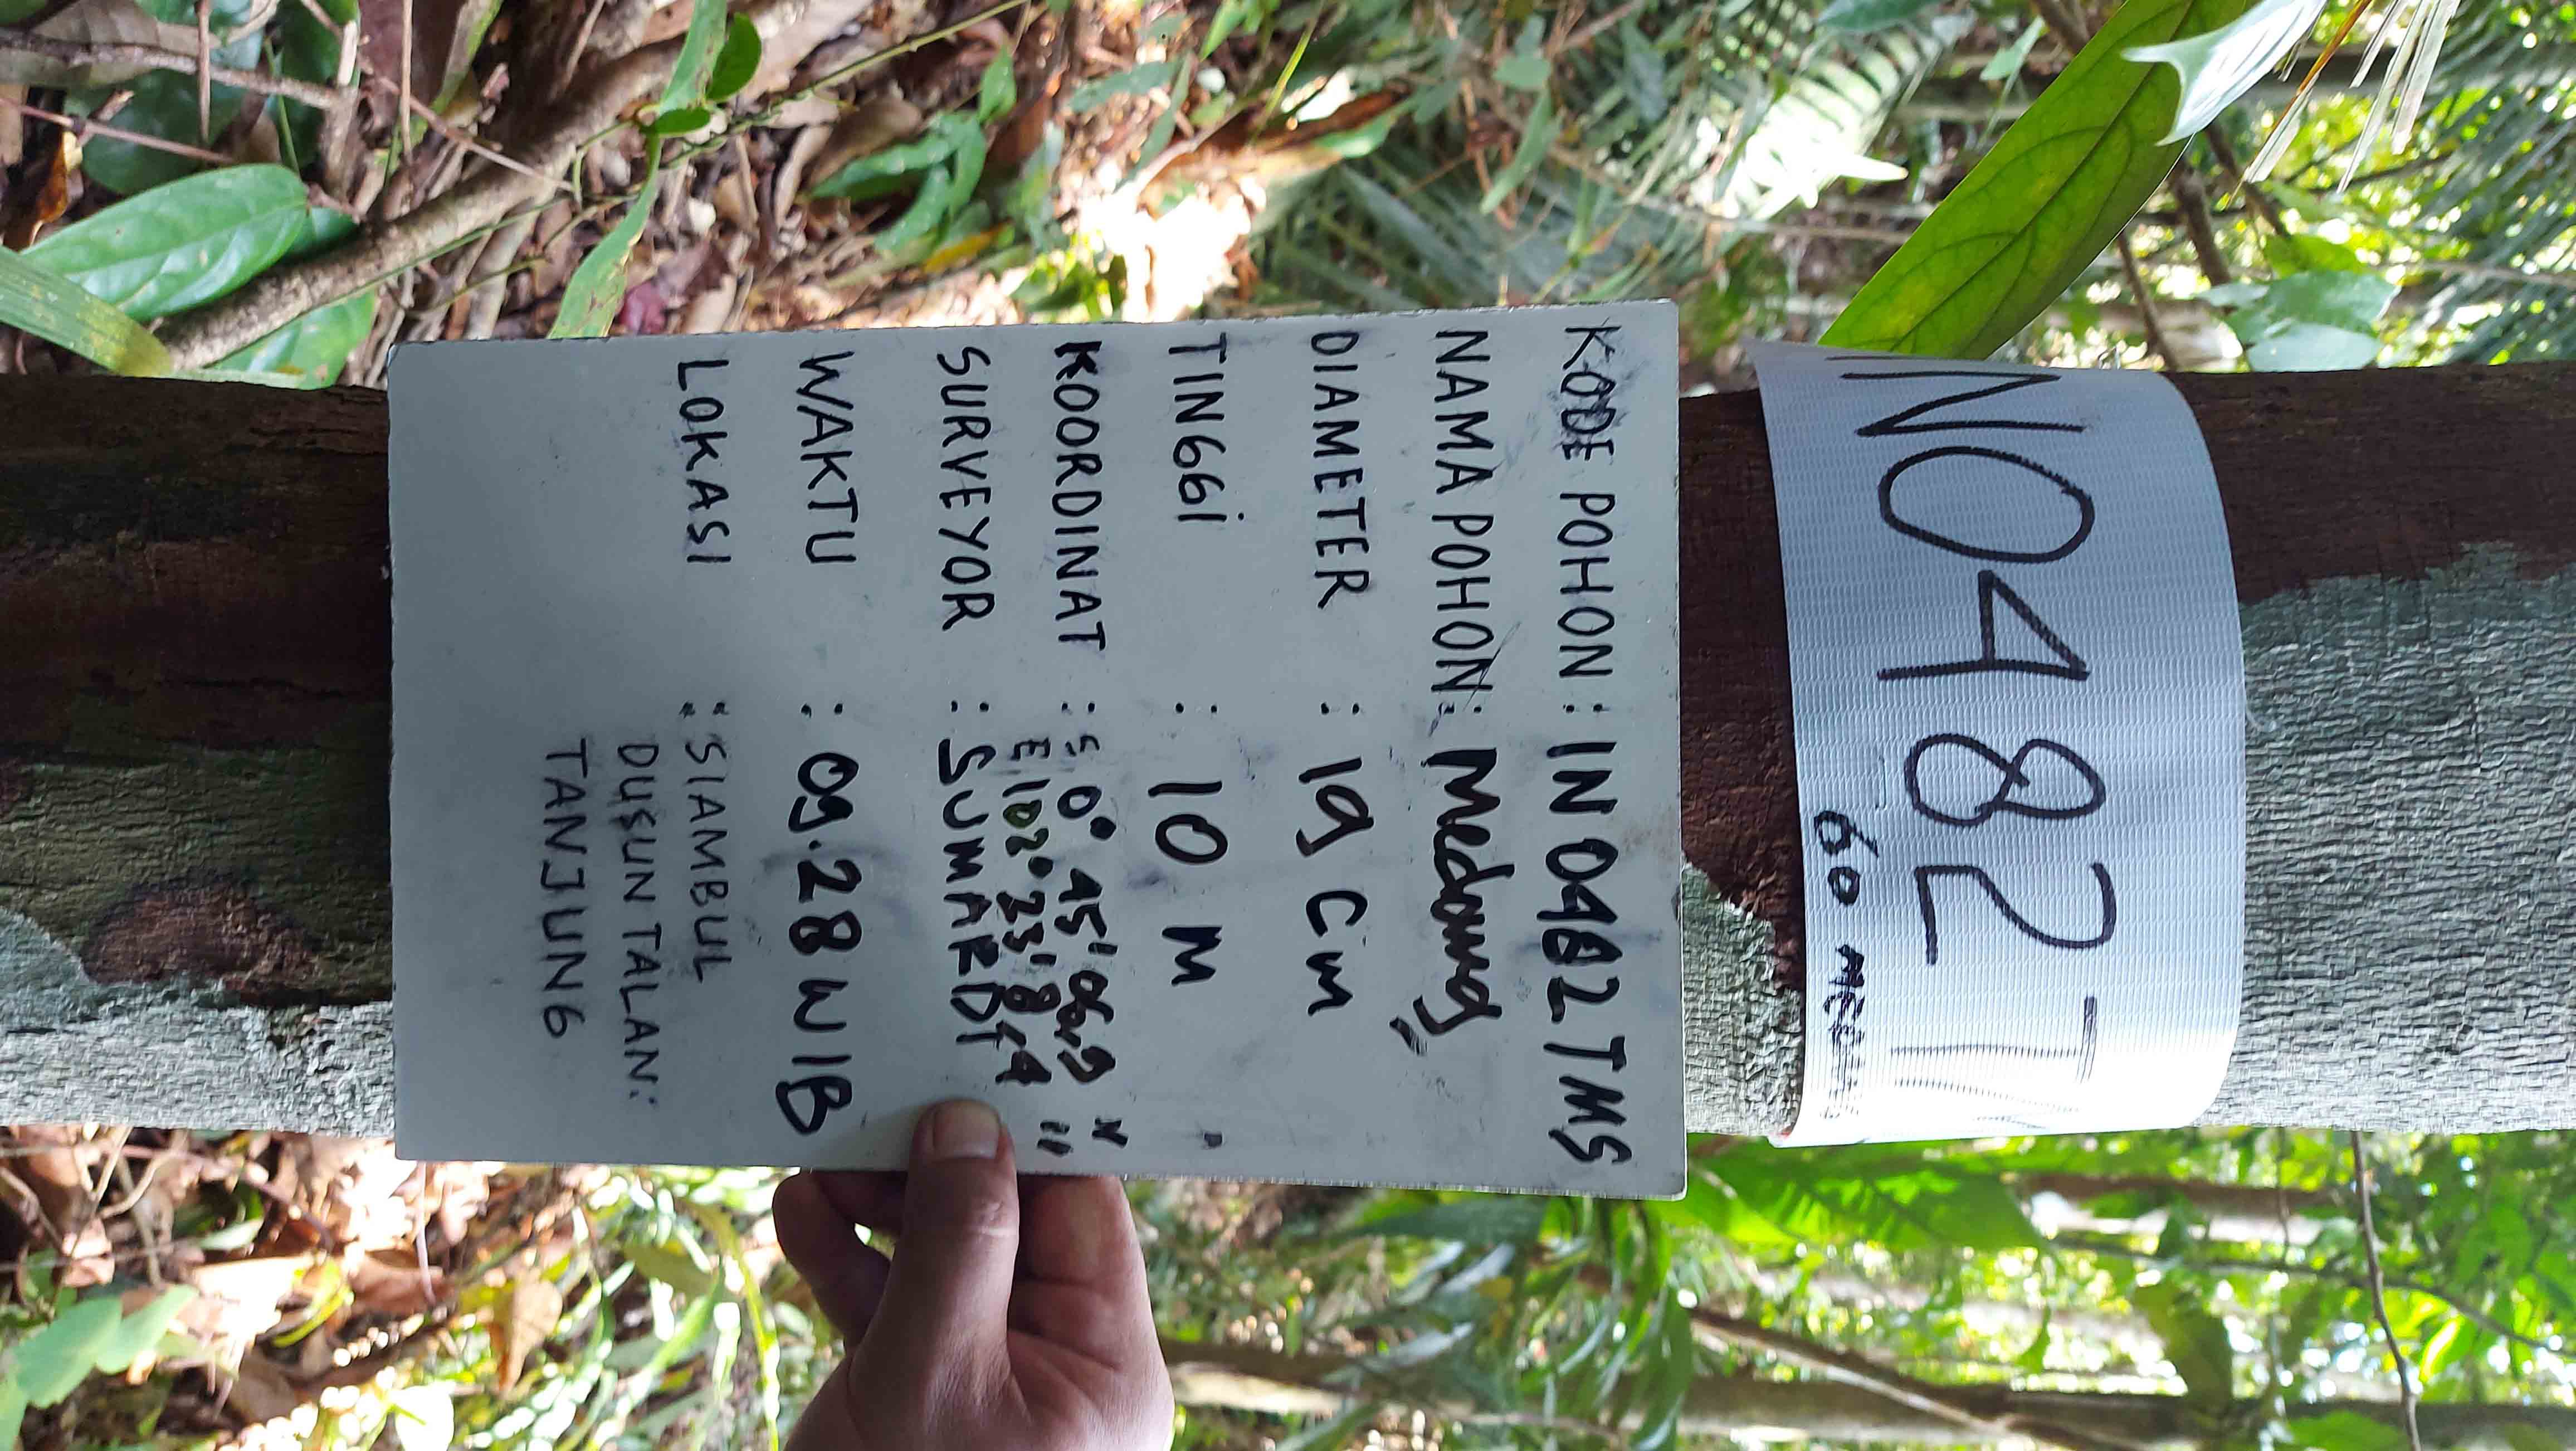 IN0482TM
60 MEDANG
KODE POHON : IN 0482 TMS
NAMA POHON : Medang
DIAMETER : 19 Cm
TINGGI : 10 M
KOORDINAT : S 0° 45' 06,9 "
E 102° 23' 8,4 "
SURVEYOR : SUMARDI
WAKTU : 09.28 WIB
LOKASI : SIAMBUL
DUSUN TALAN:
TANJUNG